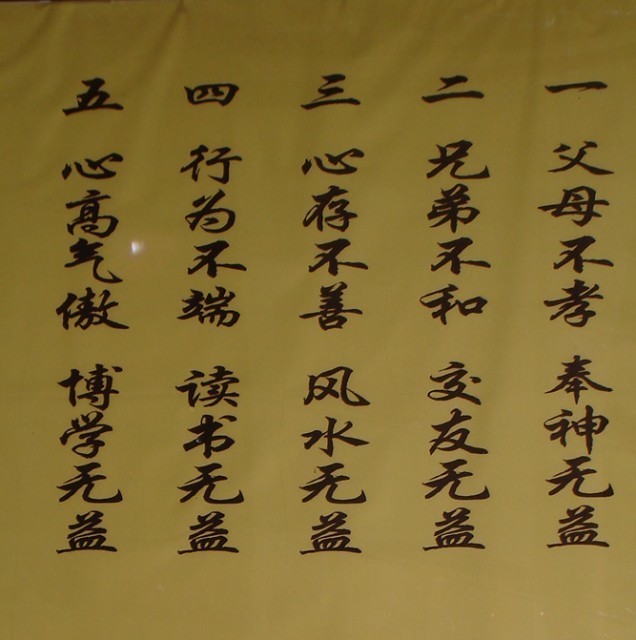 一 父母不孝 奉神无益
二 兄弟不和 交友无益
三 心存不善 风水无益
四 行为不端 读书无益
五 心高气傲 博学无益